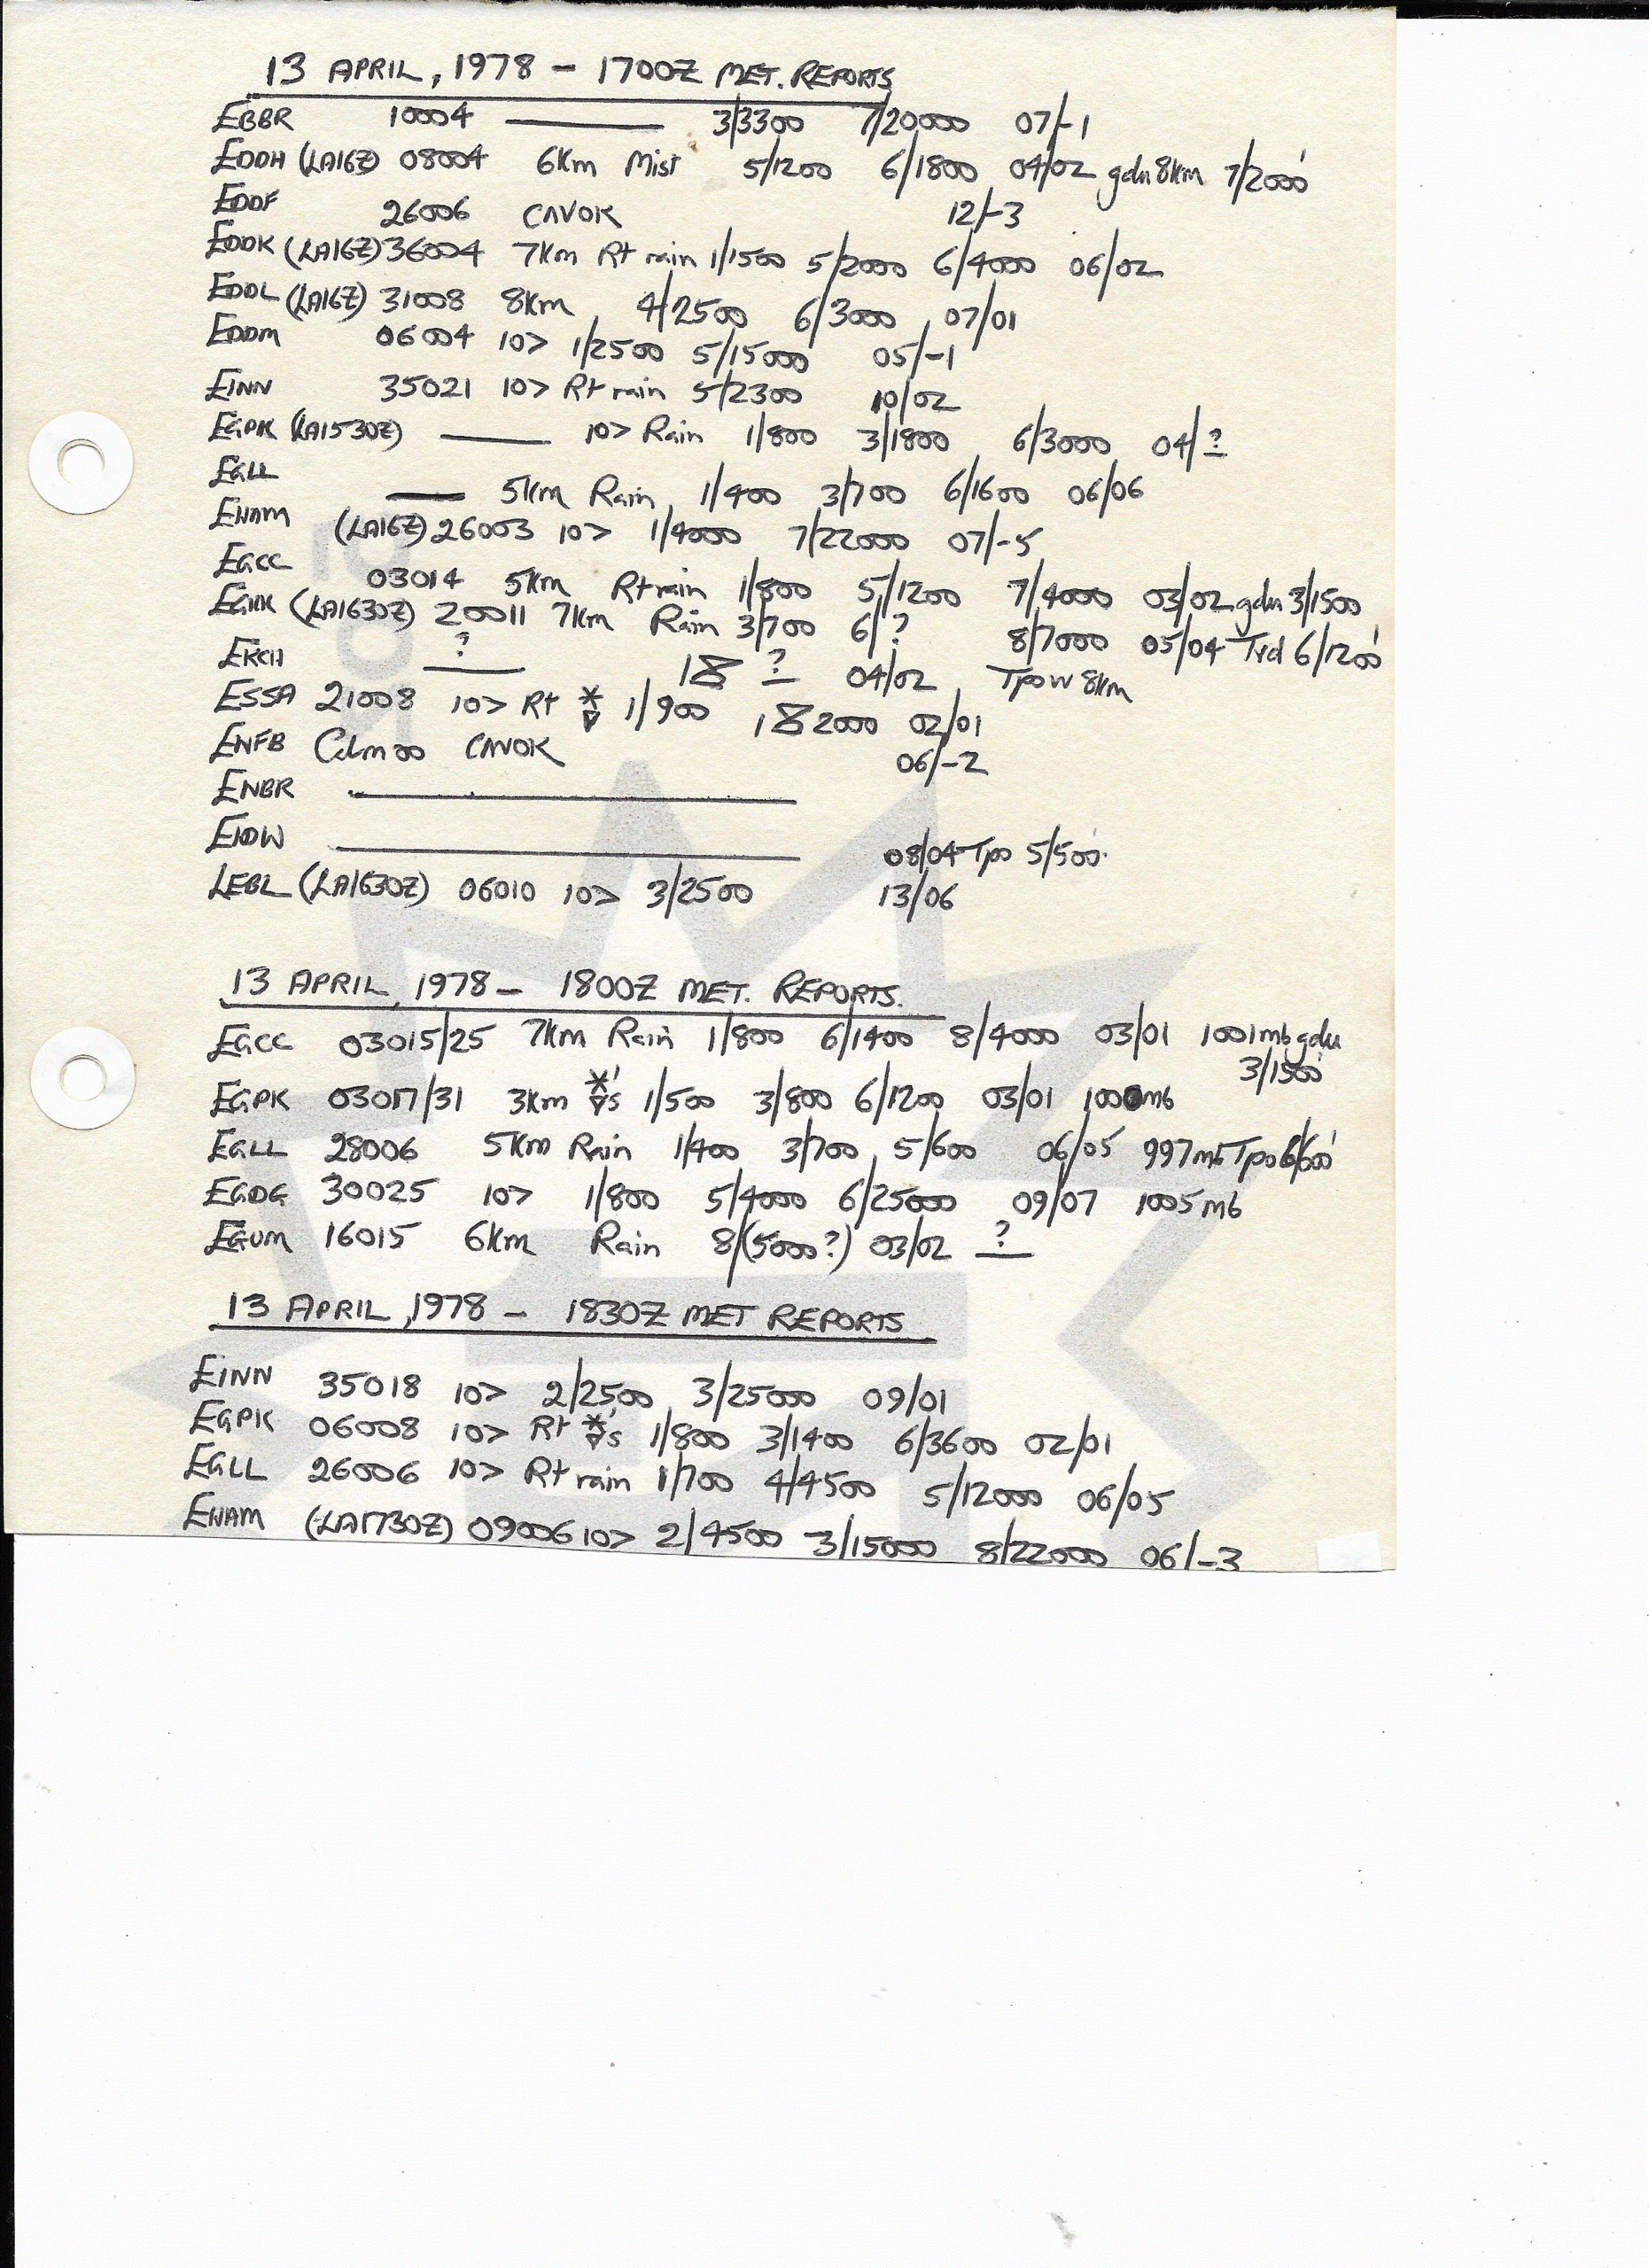 13 APRIL, 1978 - 1700Z MET. REPORTS
EBBR 10004 —— 3/3300 7/20000 07/-1
EDDH (LA16Z) 08004 6Km Mist 5/1200 6/1800 04/02 gdu 8km 7/2000'
EDDF 26006 CAVOK 12/-3
EDDK (LA16Z) 36004 7Km Rt rain 1/1500 5/2000 6/4000 06/02
EDDL (LA16Z) 31008 8km 4/2500 6/3000 07/01
EDDM 06004 10> 1/2500 5/15000 05/-1
EINN 35021 10> Rt rain 5/2300 10/02
EGPK (LA1530Z) —— 10> Rain 1/800 3/1800 6/3000 04/?
EGLL —— 5km Rain 1/400 3/700 6/1600 06/06
EHAM (LA16Z) 26003 10> 1/4000 7/22000 07/-5
EGCC 03014 5km Rt rain 1/800 5/1200 7/4000 03/02 gdu 3/1500
EGKK (LA1630Z) 20011 7km Rain 3/700 6/? 8/7000 05/04 Trd 6/1200'
EKCH ? 18 ? 04/02 Tpo W 8km
ESSA 21008 10> Rt 1/900 18 2000 02/01
ENFB Calm 00 CAVOK 06/-2
ENBR ——
EIDW —— 08/04 Tpo 5/500'
LEBL (LA1630Z) 06010 10> 3/2500 13/06
13 APRIL, 1978 - 1800Z MET. REPORTS.
EGCC 03015/25 7km Rain 1/800 6/1400 8/4000 03/01 1001mb gdu
3/1500'
EGPK 03017/31 3km 1/500 3/800 6/1200 03/01 1000mb
EGLL 28006 5km Rain 1/400 3/700 5/600 06/05 997mb Tpo 6/600'
EGDG 30025 10> 1/800 5/4000 6/25000 09/07 1005mb
EGUM 16015 6km Rain 8/(5000?) 03/02 ?
13 APRIL, 1978 - 1830Z MET REPORTS
EINN 35018 10> 2/2500 3/25000 09/01
EGPK 06008 10> Rt 1/800 3/1400 6/3600 02/01
EGLL 26006 10> Rt rain 1/700 4/4500 5/12000 06/05
EHAM (LA1730Z) 09006 10> 2/4500 3/15000 8/22000 06/-3